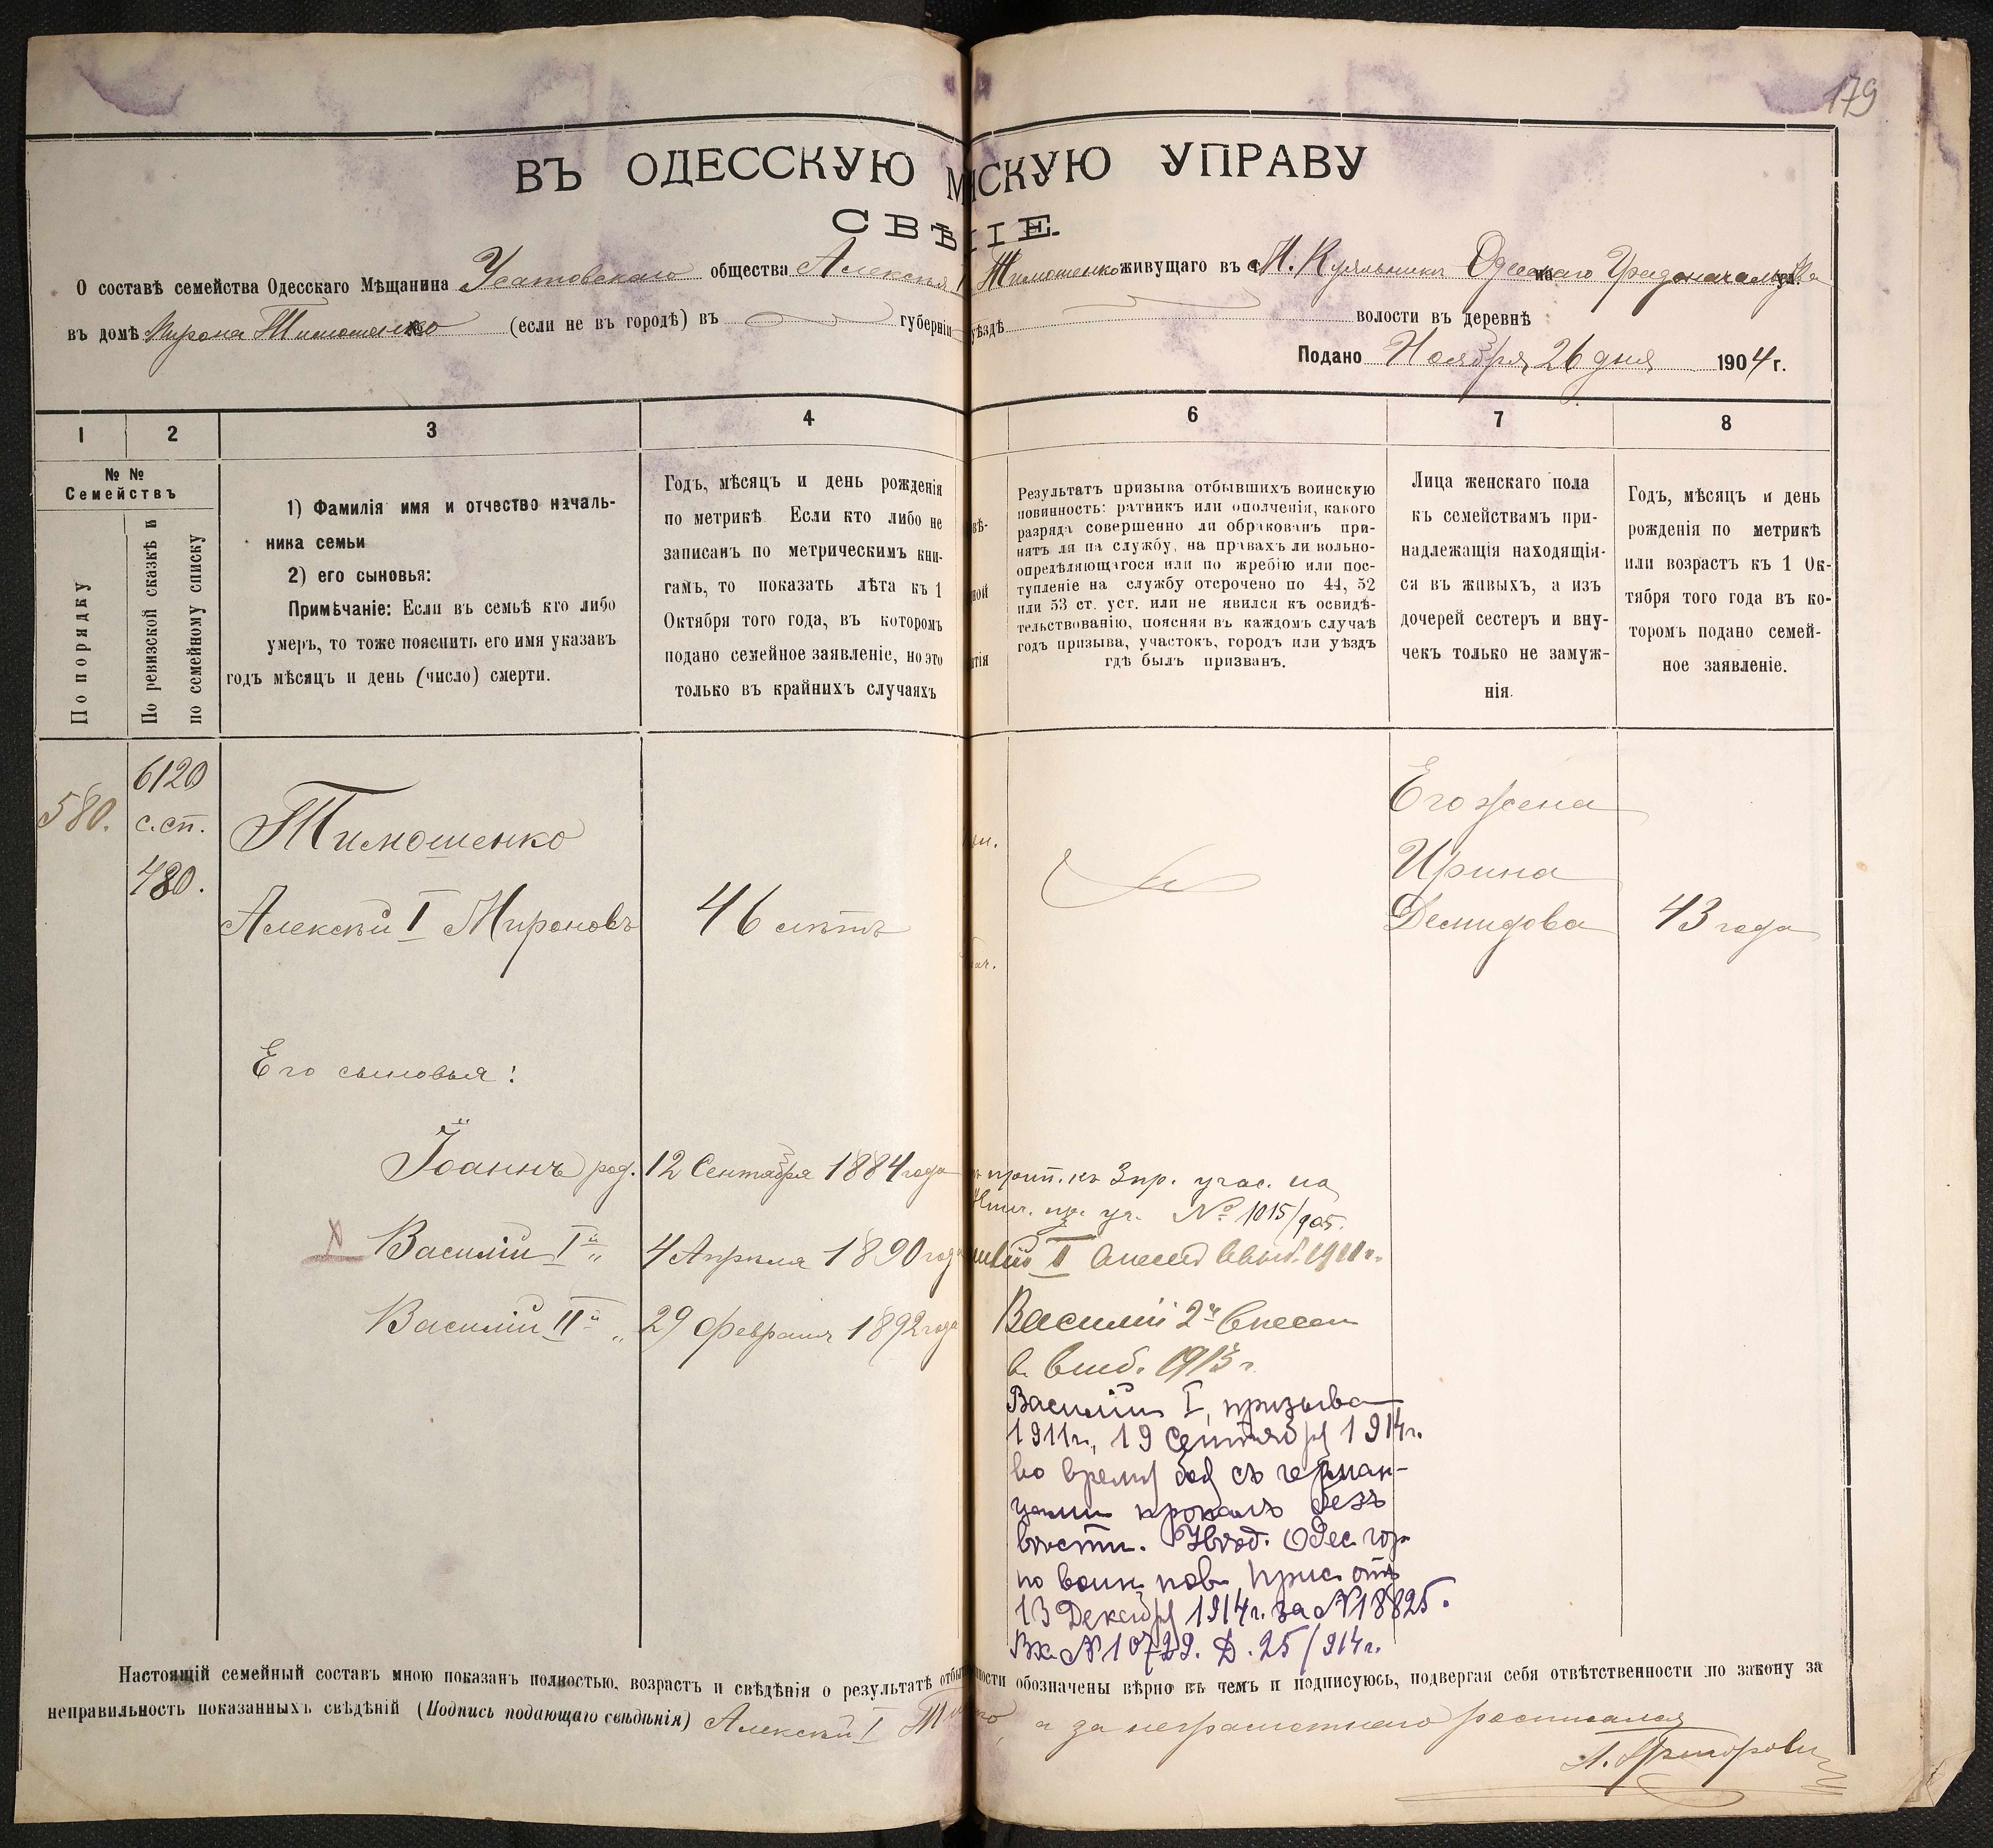 179
ВЪ ОДЕССКУЮ М СКУЮ УПРАВУ
СВѢ ІЕ.
О составѣ семейства Одесскаго Мѣщанина Усатовскаго общества Алексѣя I Тимошенко живущаго въ с. Н. Куяльникъ Одесскаго Градоначальства
въ домѣ Мирона Тимошенко (если не въ городѣ) въ губерніи уѣздѣ волости въ деревнѣ
Подано Ноября 26 дня 1904 г.
1 2 3 4 6 7 8
№ №
Семействъ
По порядку
По ревизской сказкѣ и
по семейному списку
1) Фамилія имя и отчество началь-
ника семьи
2) его сыновья:
Примѣчаніе: Если въ семьѣ кто либо
умеръ, то тоже пояснить его имя указавъ
годъ мѣсяцъ и день (число) смерти.
Годъ, мѣсяцъ и день рожденія
по метрикѣ Если кто либо не
записанъ по метрическимъ кни-
гамъ, то показать лѣта къ 1
Октября того года, въ которомъ
подано семейное заявленіе, но это
только въ крайнихъ случаяхъ
Результатъ призыва отбывшихъ воинскую
повинность: ратникъ или ополченія, какого
разряда совершенно ли обракованъ при-
нятъ ли на службу, на правахъ ли вольно-
опредѣляющагося или по жребію или пос-
тупленіе на службу отсрочено по 44, 52
или 53 ст. уст. или не явился къ освидѣ-
тельствованію, поясняя въ каждомъ случаѣ
годъ призыва, участокъ, городъ или уѣздъ
гдѣ былъ призванъ.
Лица женскаго пола
къ семействамъ при-
надлежащія находящія-
ся въ живыхъ, а изъ
дочерей сестеръ и вну-
чекъ только не замуж-
нія.
Годъ, мѣсяцъ и день
рожденія по метрикѣ
или возрастъ къ 1 Ок-
тября того года въ ко-
торомъ подано семей-
ное заявленіе.
580.
6120
с. сп.
480.
Тимошенко
Алексѣй I Мироновъ
46 лѣтъ
Его жена
Ирина
Демидова
43 года
Его сыновья:
Іоаннъ род. 12 Сентября 1884 года
прип. къ 3 пр. учас. на
пр. уч. № 1015/905.
Василій I й " 4 Апрѣля 1890 года
I внесенъ 1911 г.
Василій II й " 29 Февраля 1892 года
Василій 2й внесен
в. 1913 г.
Василій I, призыва
1911 г., 19 Сентября 1914 г.
во время боя съ герман-
цами пропалъ безъ
вѣсти. Одес. гор.
по воин. пов. Прис. отъ
13 Декабря 1914 г. за № 18825.
Вх. № 10729. Д. 25/914 г.
Настоящій семейный составъ мною показанъ полностью, возрастъ и свѣдѣнія о результатѣ отбы ности обозначены вѣрно въ чемъ и подписуюсь, подвергая себя отвѣтственности по закону за
неправильность показанныхъ свѣдѣній (Подпись подающаго свѣдѣнія) Алексѣй I а за неграмотнаго росписался